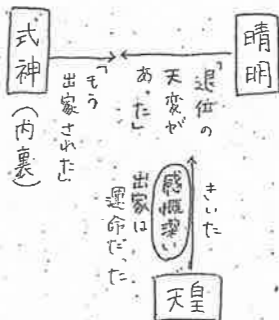 晴明
「退位の
天変が
あった」
式神
(内裏)
「もう
出家された」
きいた
感慨深い
出家は
運命だった
天皇